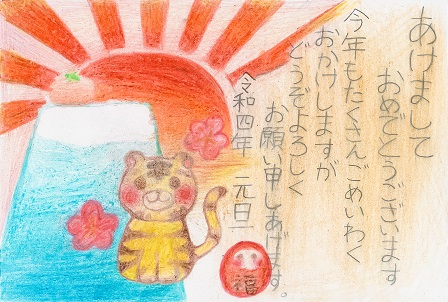 あけまして
おめでとうございます
今年もたくさんごめいわく
おかけしますが
どうぞよろしく
お願い申しあげます。
令和四年 元日
福